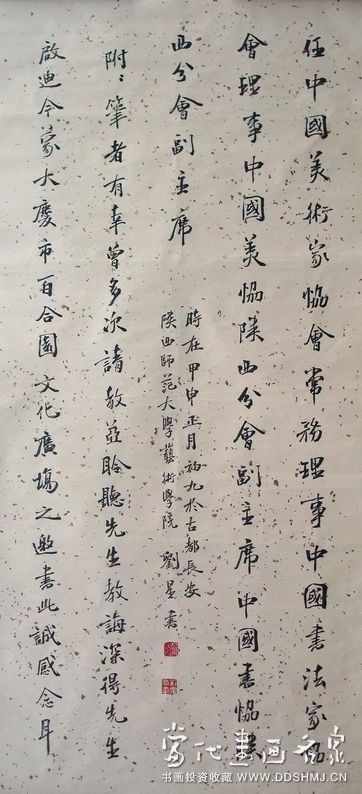 任中國美術家協會常務理事中國書法家協
會理事中國美協陝西分會副主席中國書協陝
西分會副主席
時在甲申正月初九於古都長安
陝西師范大學藝術學院 劉星書
附：筆者有幸曾多次請教並聆聽先生教誨深得先生
啟迪今蒙大慶市百合園文化廣場之邀書此誠感念耳
当代書画名家
书画投资收藏 WWW.DDSHMJ.CN